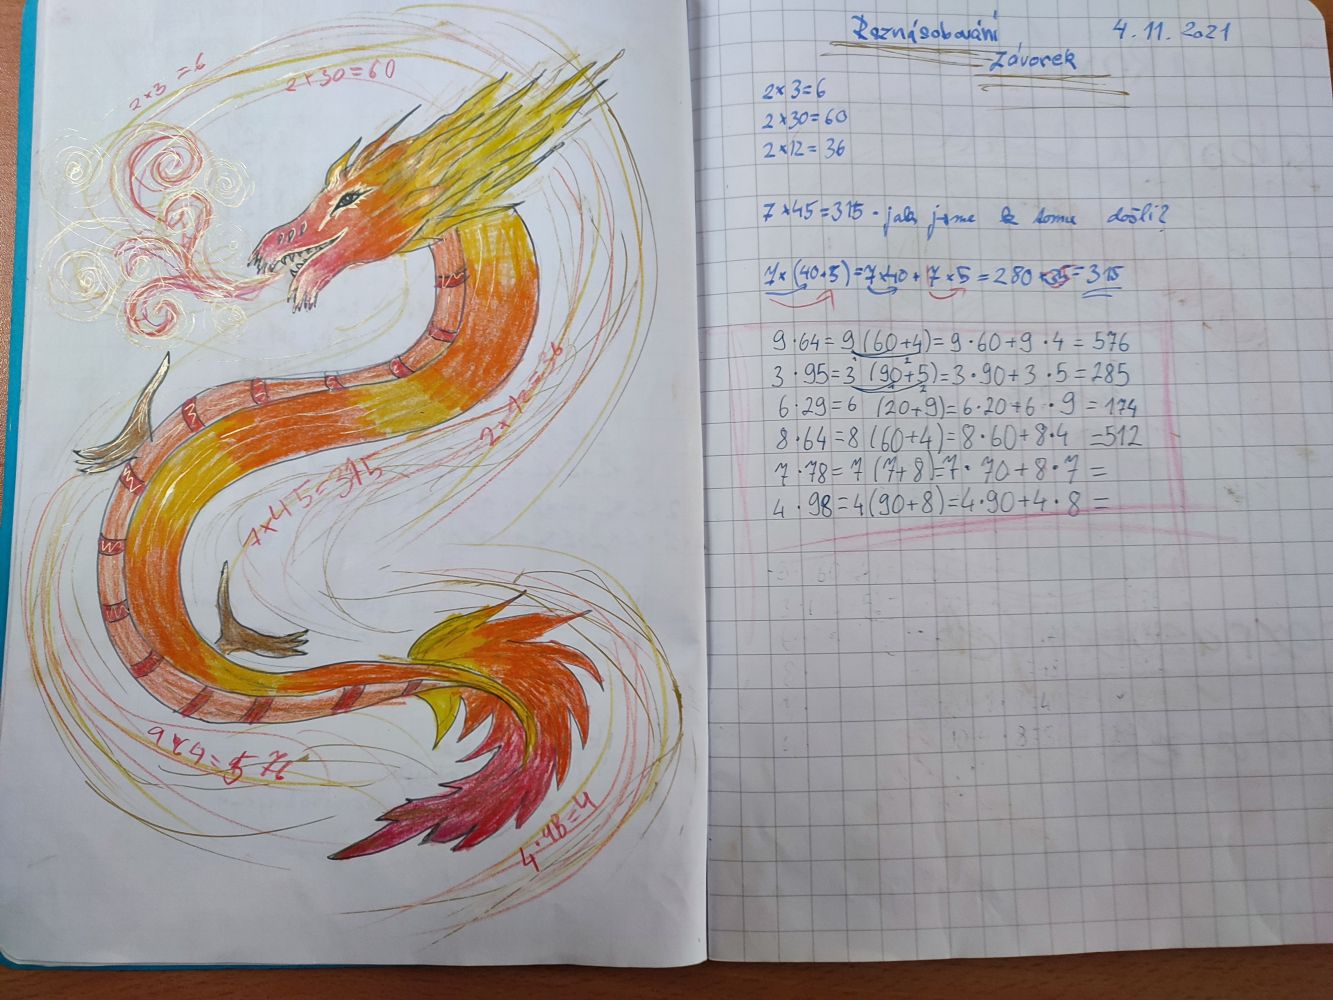 2×3=6
2×30=60
7×45=315
9×4=576
4·98=4
Roznásobování 4.11.2021
Závorek
2×3=6
2×30=60
2×12=36
7×45=315 - jak jsme k tomu došli?
7×(40+5)=7×40+7×5=280+35=315
9·64=9(60+4)=9·60+9·4=576
3·95=3(90+5)=3·90+3·5=285
6·29=6(20+9)=6·20+6·9=174
8·64=8(60+4)=8·60+8·4=512
7·78=7(7+8)=7·70+8·7=
4·98=4(90+8)=4·90+4·8=